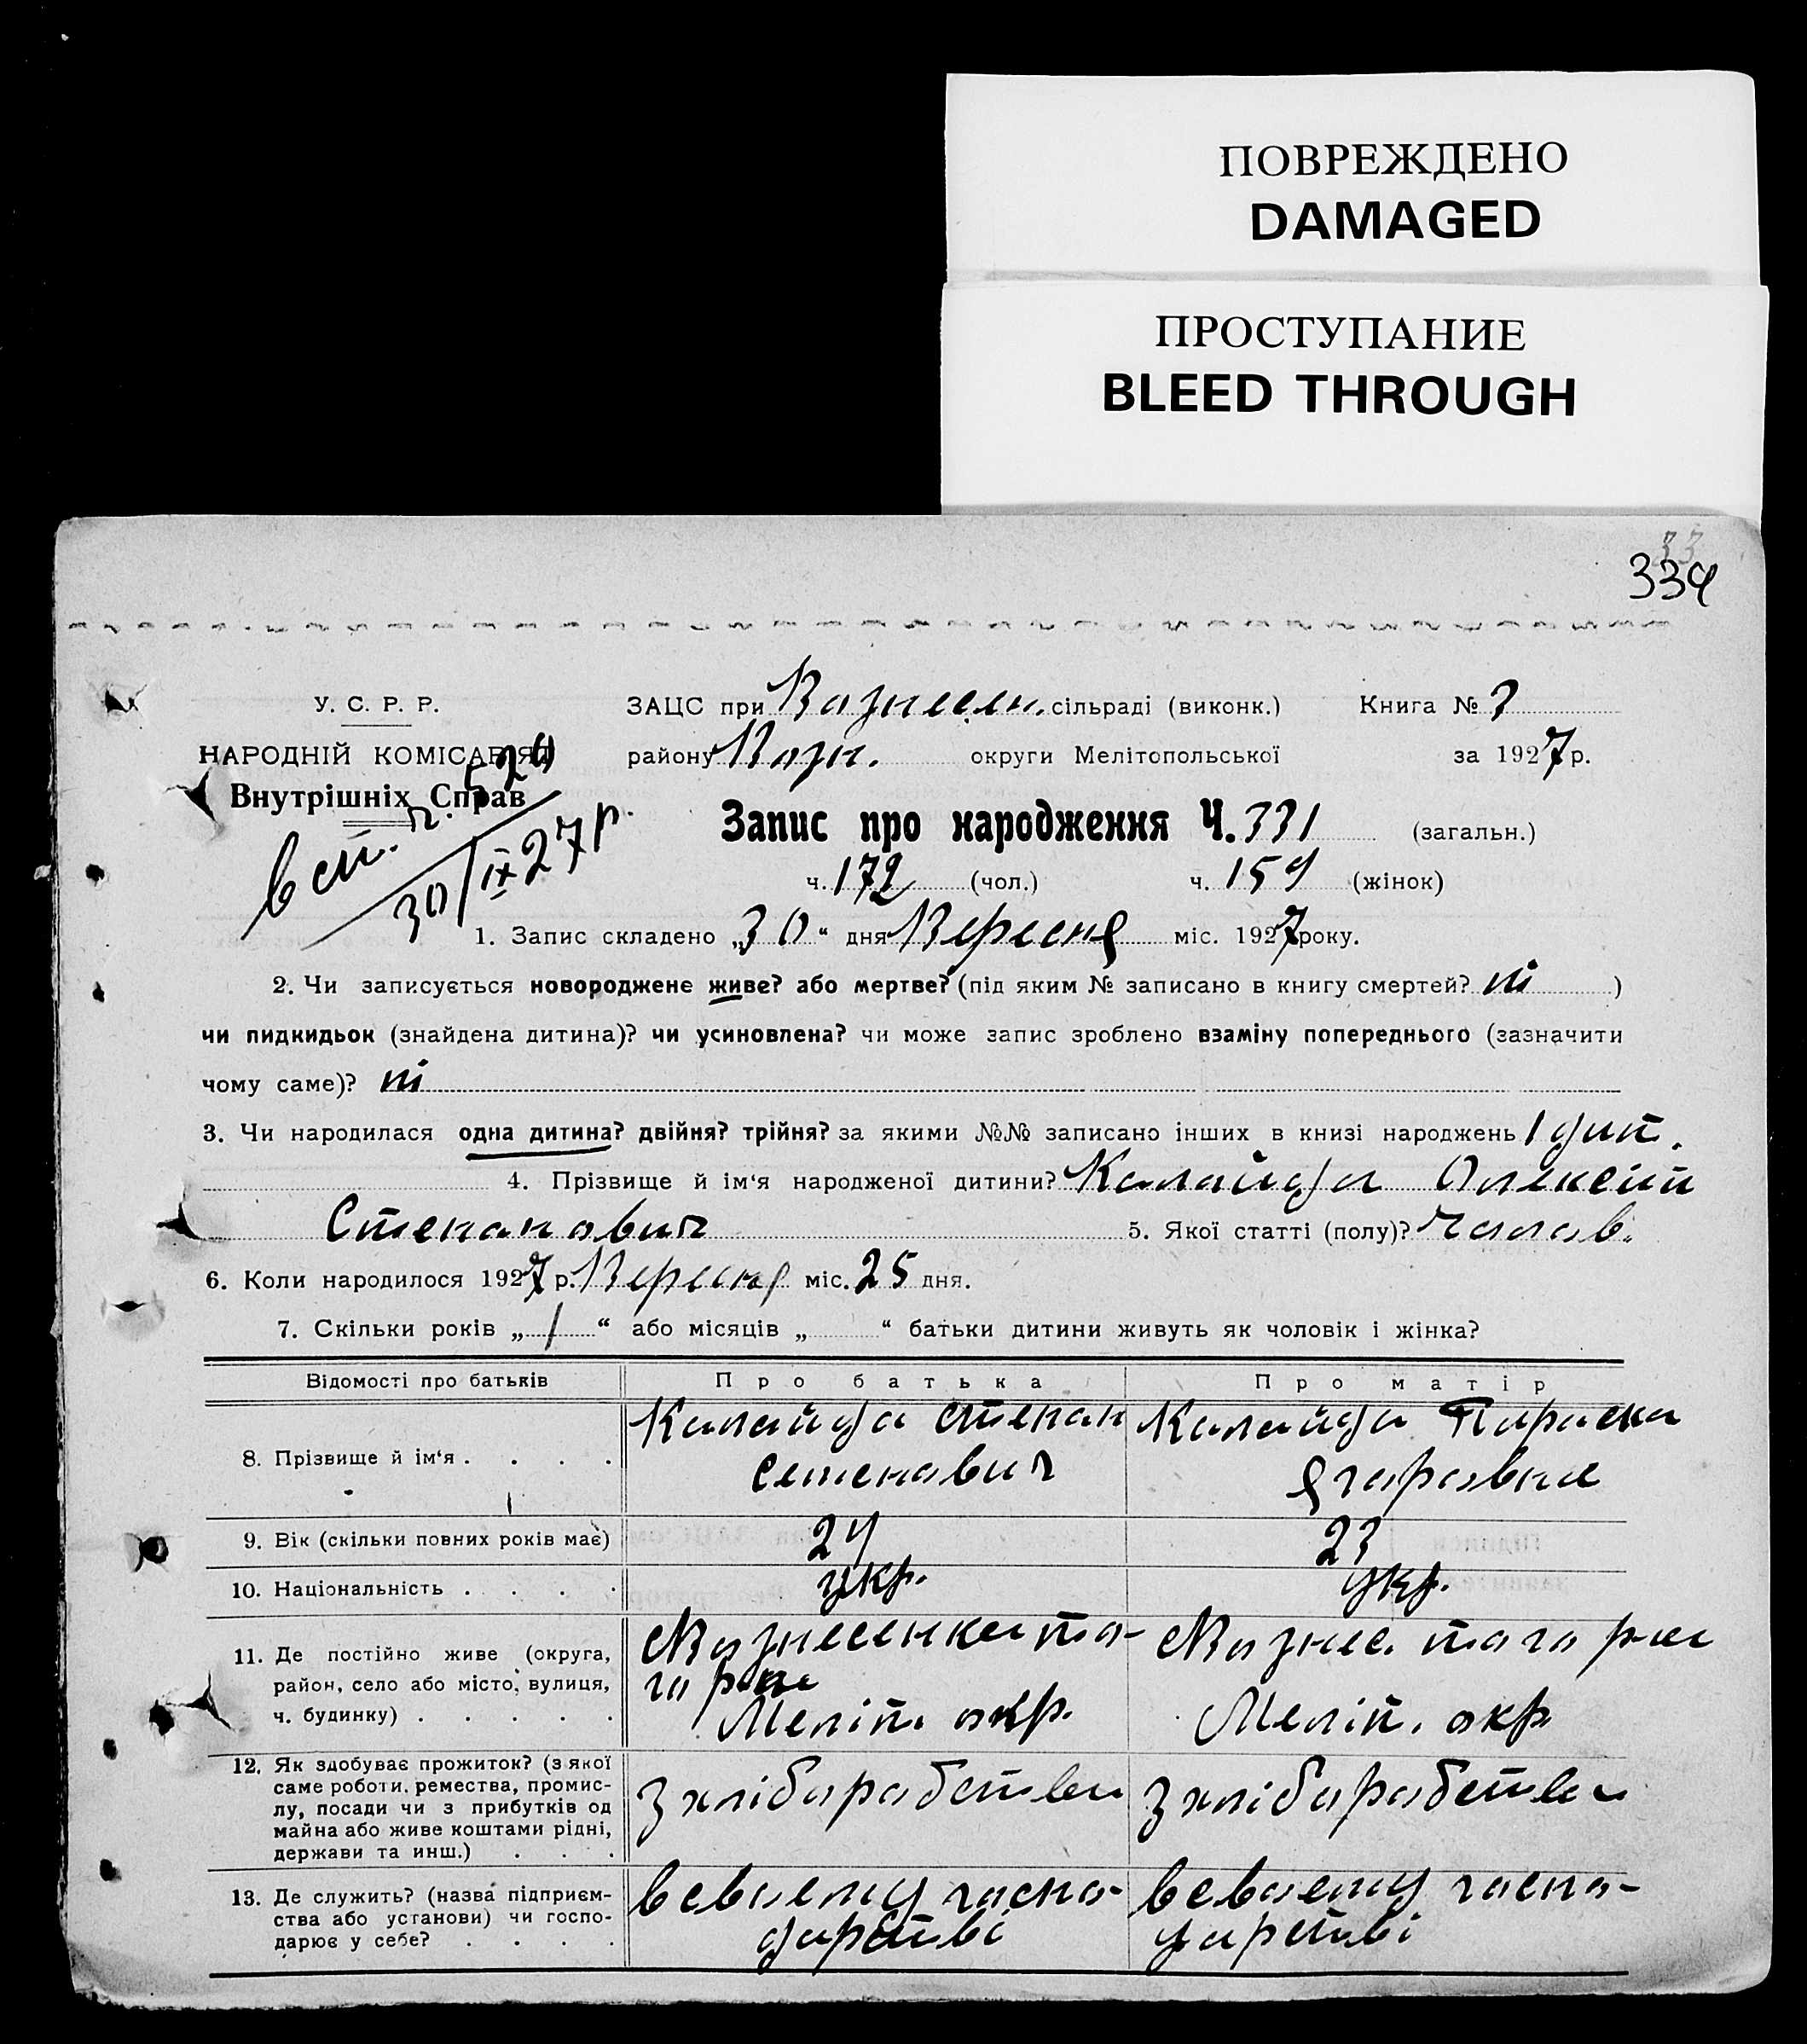 ПОВРЕЖДЕНО
DAMAGED
ПРОСТУПАНИЕ
BLEED THROUGH
33
334
У. С. Р. Р.
НАРОДНІЙ КОМІСАРІЯТ
Внутрішніх Справ
вст. п. 524
30/IX 27 р.
ЗАЦС при Вознесен. сільраді (виконк.) Книга № 3
району Возн. округи Мелітопольської за 1927 р.
Запис про народження Ч. 331 (загальн.)
ч. 172 (чол.) ч. 159 (жінок)
1. Запис складено „30“ дня Вересня міс. 1927 року.
2. Чи записується новороджене живе? або мертве? (під яким № записано в книгу смертей? ні )
чи пидкидьок (знайдена дитина)? чи усиновлена? чи може запис зроблено взаміну попереднього (зазначити
чому саме)? ні
3. Чи народилася одна дитина? двійня? трійня? за якими №№ записано інших в книзі народжень 1 дит.
4. Прізвище й ім'я народженої дитини? Калайда Олексій
Степанович 5. Якої статті (полу)? Чолов.
6. Коли народилося 1927 р. Вересня міс. 25 дня.
7. Скільки років „ 1 “ або місяців „ “ батьки дитини живуть як чоловік і жінка?
Відомості про батьків Про батька Про матір
8. Прізвище й ім'я . . . . Калайда Степан Калайда Параска
Семенович Ягоровна
9. Вік (скільки повних років має) 24 23
10. Національність . . . . укр. укр.
11. Де постійно живе (округа, Вознесенка то- Вознес. того р-ну
район, село або місто, вулиця, го р-ну
ч. будинку) . . . . . Меліт. окр. Меліт. окр.
12. Як здобуває прожиток? (з якої
саме роботи, ремества, промис- З хліборобства З хліборобства
лу, посади чи з прибутків од
майна або живе коштами рідні,
держави та инш.) . . .
13. Де служить? (назва підприєм- в своєму госпо- в своєму госпо-
ства або установи) чи госпо- дарстві дарстві
дарює у себе? . . . .